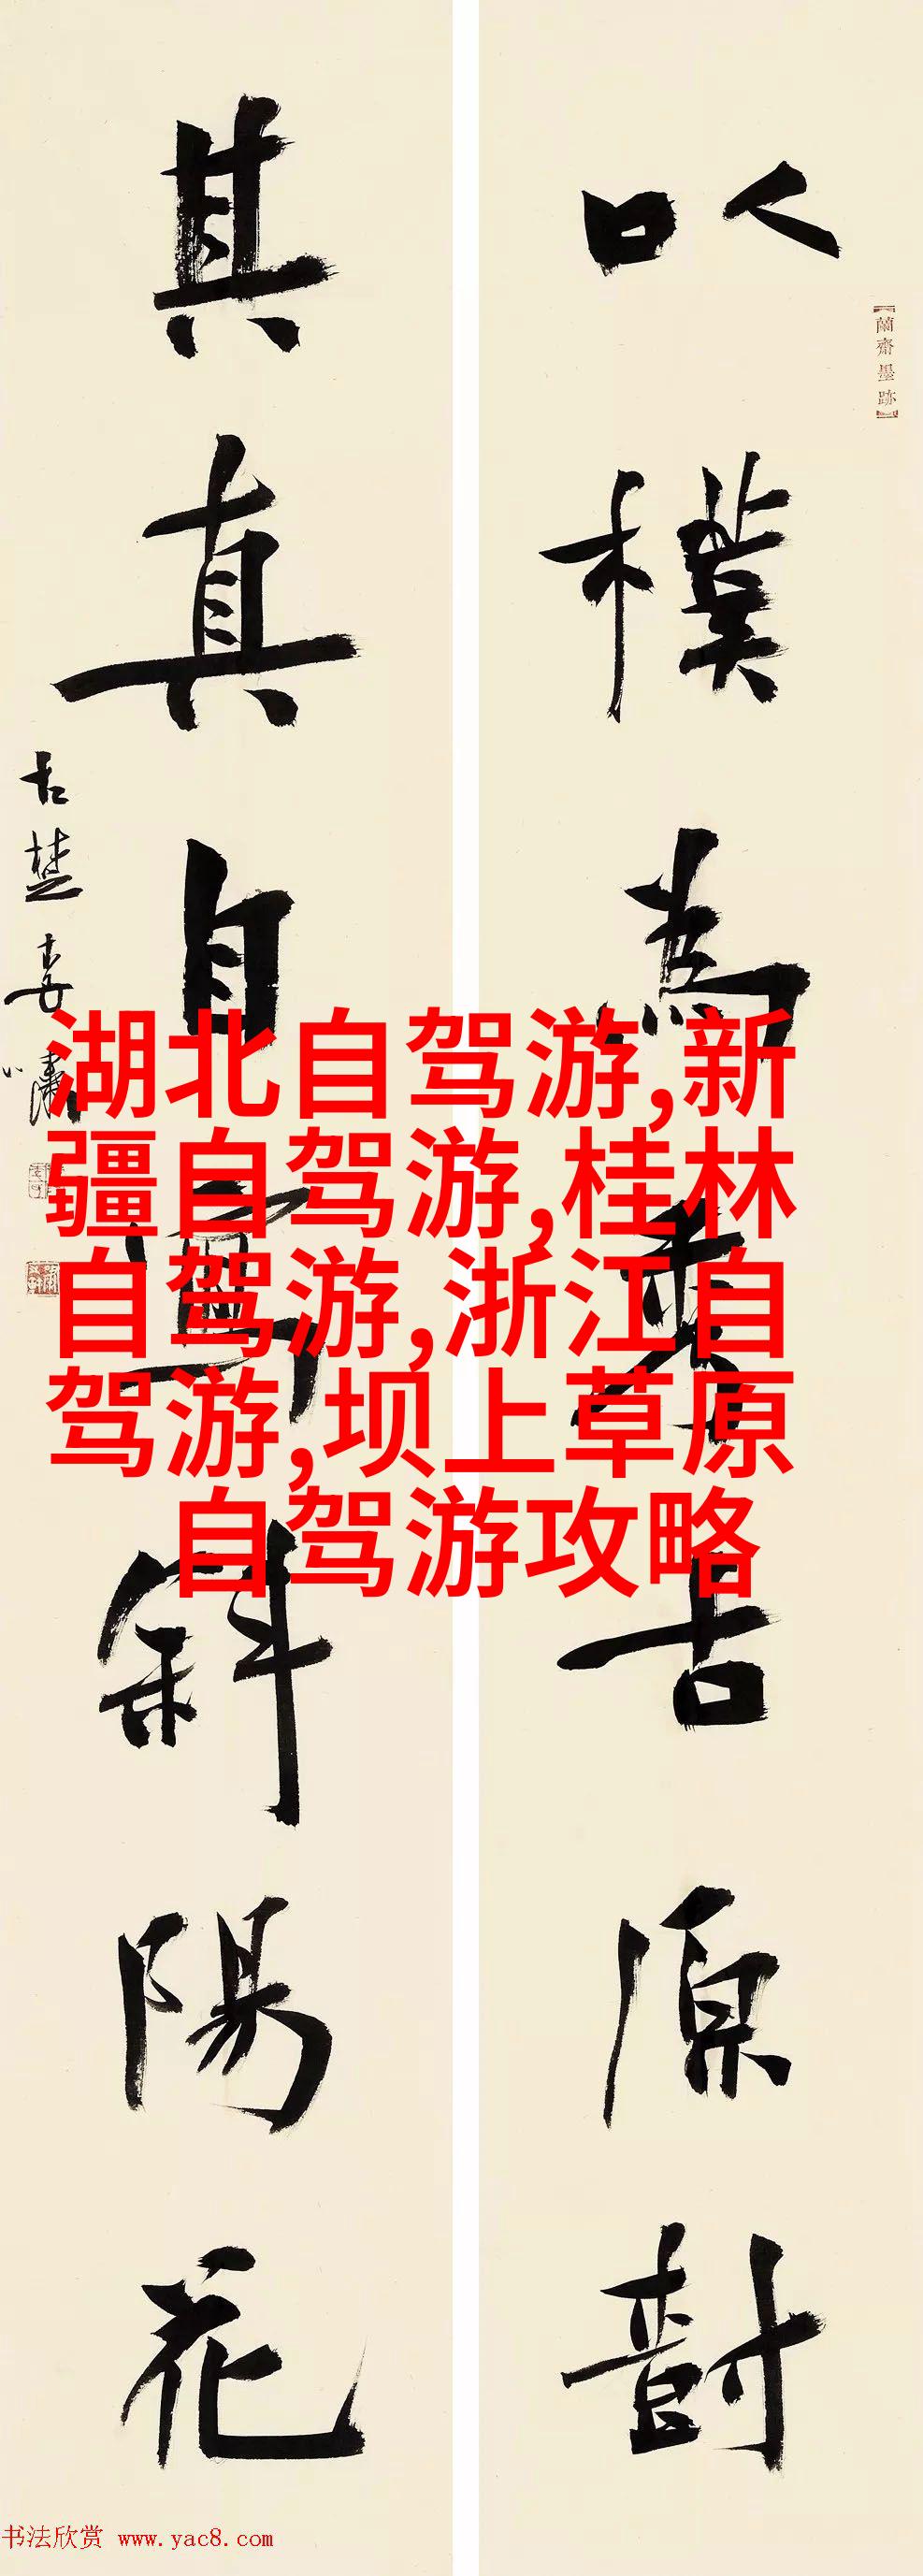 以樸為秀古原樹
【蘭齋墨跡】
其真自寫斜陽花
古楚
湖北自驾游,新
疆自驾游,桂林
自驾游,浙江自
驾游,坝上草原
自驾游攻略
书法欣赏 www.yac8.com